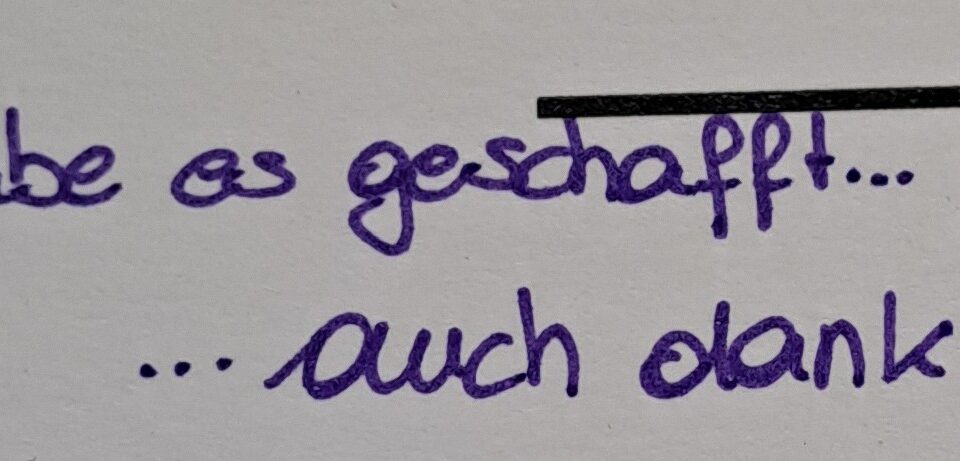 be es geschafft...
... auch dank